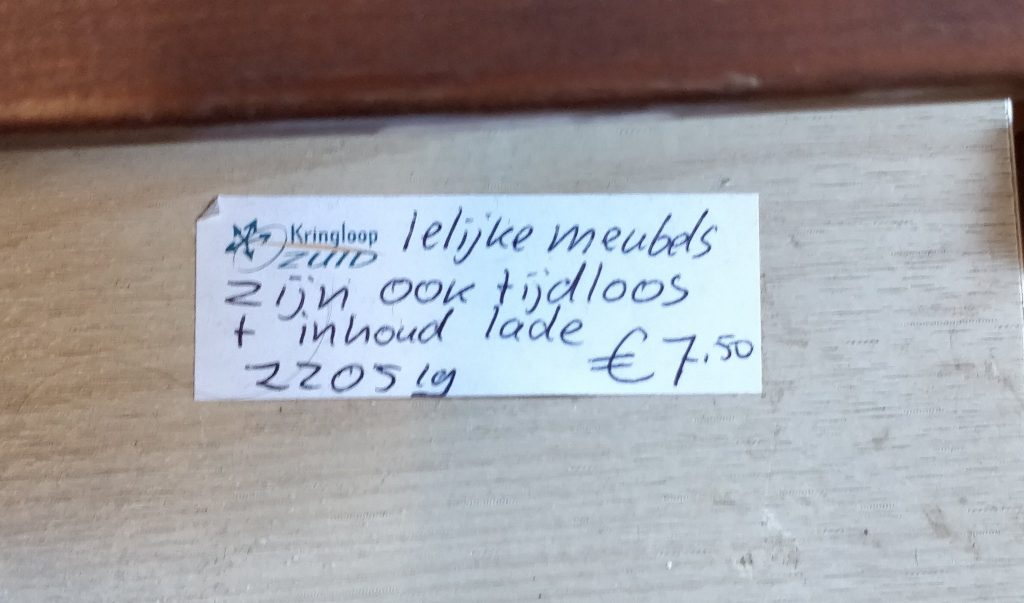 Kringloop lelijke meubels
ZUID
zijn ook tijdloos
+ inhoud lade
2205 lg €7.50